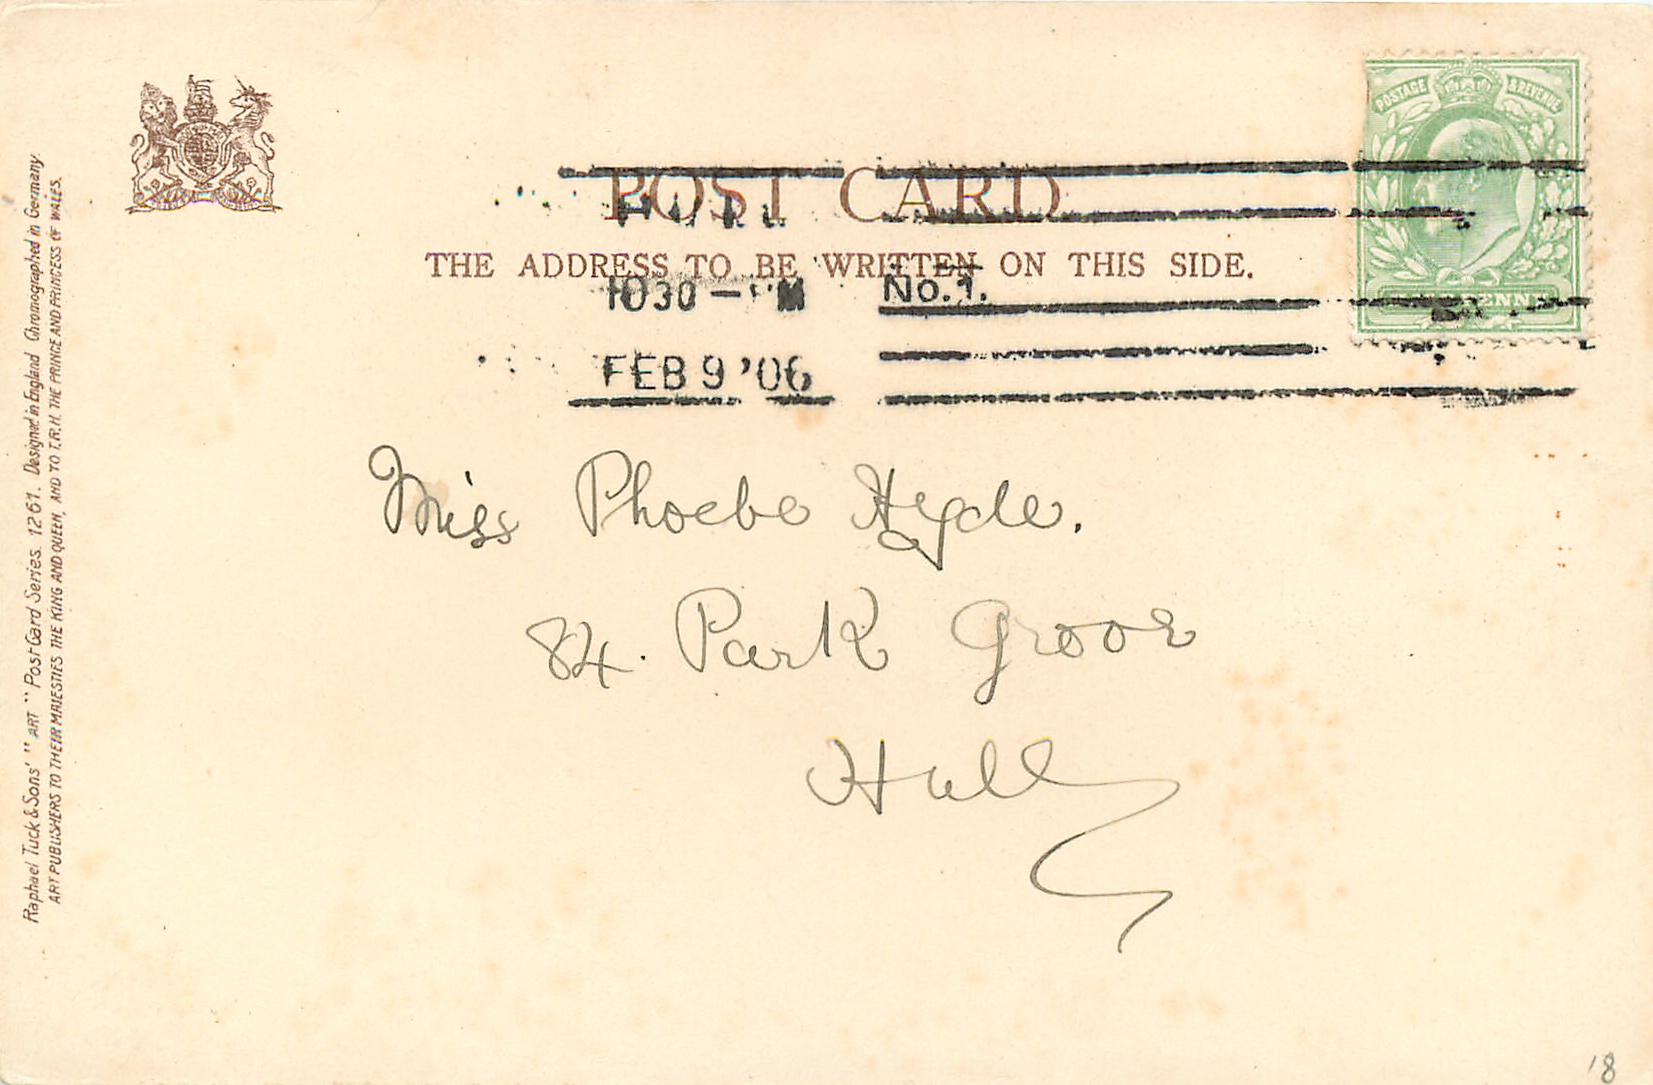 POST CARD
THE ADDRESS TO BE WRITTEN ON THIS SIDE.
POSTAGE & REVENUE
HULL
10 30 — M
No. 1.
FEB 9 '06
Miss Phoebe Hyde.
84. Park Grove
Hull
Raphael Tuck & Sons' "ART" Post Card Series. 1261. Designed in England Chromographed in Germany
ART PUBLISHERS TO THEIR MAJESTIES THE KING AND QUEEN, AND TO T.R.H. THE PRINCE AND PRINCESS OF WALES.
18